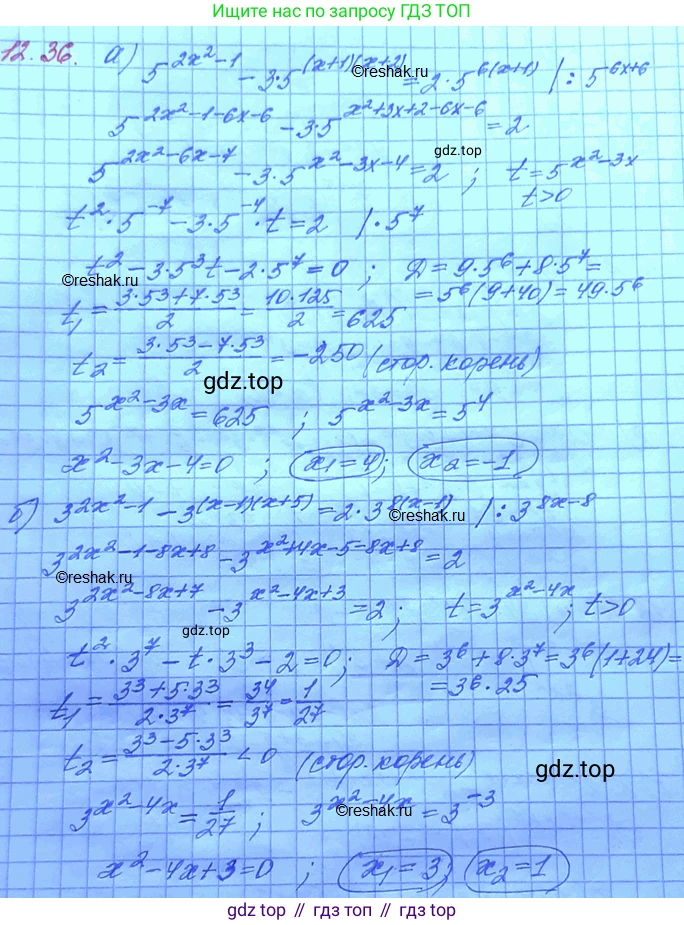 Ищите нас по запросу ГДЗ ТОП
12.36. а) 5^(2x²-1) - 3·5^((x+1)(x+2)) = 2·5^(6(x+1)) /: 5^(6x+6)
©reshak.ru
5^(2x²-1-6x-6) - 3·5^(x²+3x+2-6x-6) = 2
gdz.top
5^(2x²-6x-7) - 3·5^(x²-3x-4) = 2 ; t = 5^(x²-3x)
t>0
t²·5^(-7) - 3·5^(-4)·t = 2 /·5⁷
t² - 3·5³t - 2·5⁷ = 0 ; Д = 9·5⁶ + 8·5⁷ =
©reshak.ru
= 5⁶(9+40) = 49·5⁶
t₁ = (3·5³+7·5³)/2 = (10·125)/2 = 625
t₂ = (3·5³-7·5³)/2 = -250 (стор. корень)
gdz.top
5^(x²-3x) = 625 ; 5^(x²-3x) = 5⁴
x²-3x-4=0 ; x₁=4; x₂=-1
б) 3^(2x²-1) - 3^((x-1)(x+5)) = 2·3^(8(x-1)) /: 3^(8x-8)
©reshak.ru
3^(2x²-1-8x+8) - 3^(x²+4x-5-8x+8) = 2
©reshak.ru
3^(2x²-8x+7) - 3^(x²-4x+3) = 2; t = 3^(x²-4x) ; t>0
gdz.top
t²·3⁷ - t·3³ - 2 = 0; Д = 3⁶ + 8·3⁷ = 3⁶(1+24) =
= 3⁶·25
t₁ = (3³+5·3³)/(2·3⁷) = 3⁴/3⁷ = 1/27
t₂ = (3³-5·3³)/(2·3⁷) < 0 (стор. корень)
gdz.top
3^(x²-4x) = 1/27 ; 3^(x²-4x) = 3^(-3)
©reshak.ru
x²-4x+3=0 ; x₁=3 x₂=1
gdz.top // гдз топ // gdz.top